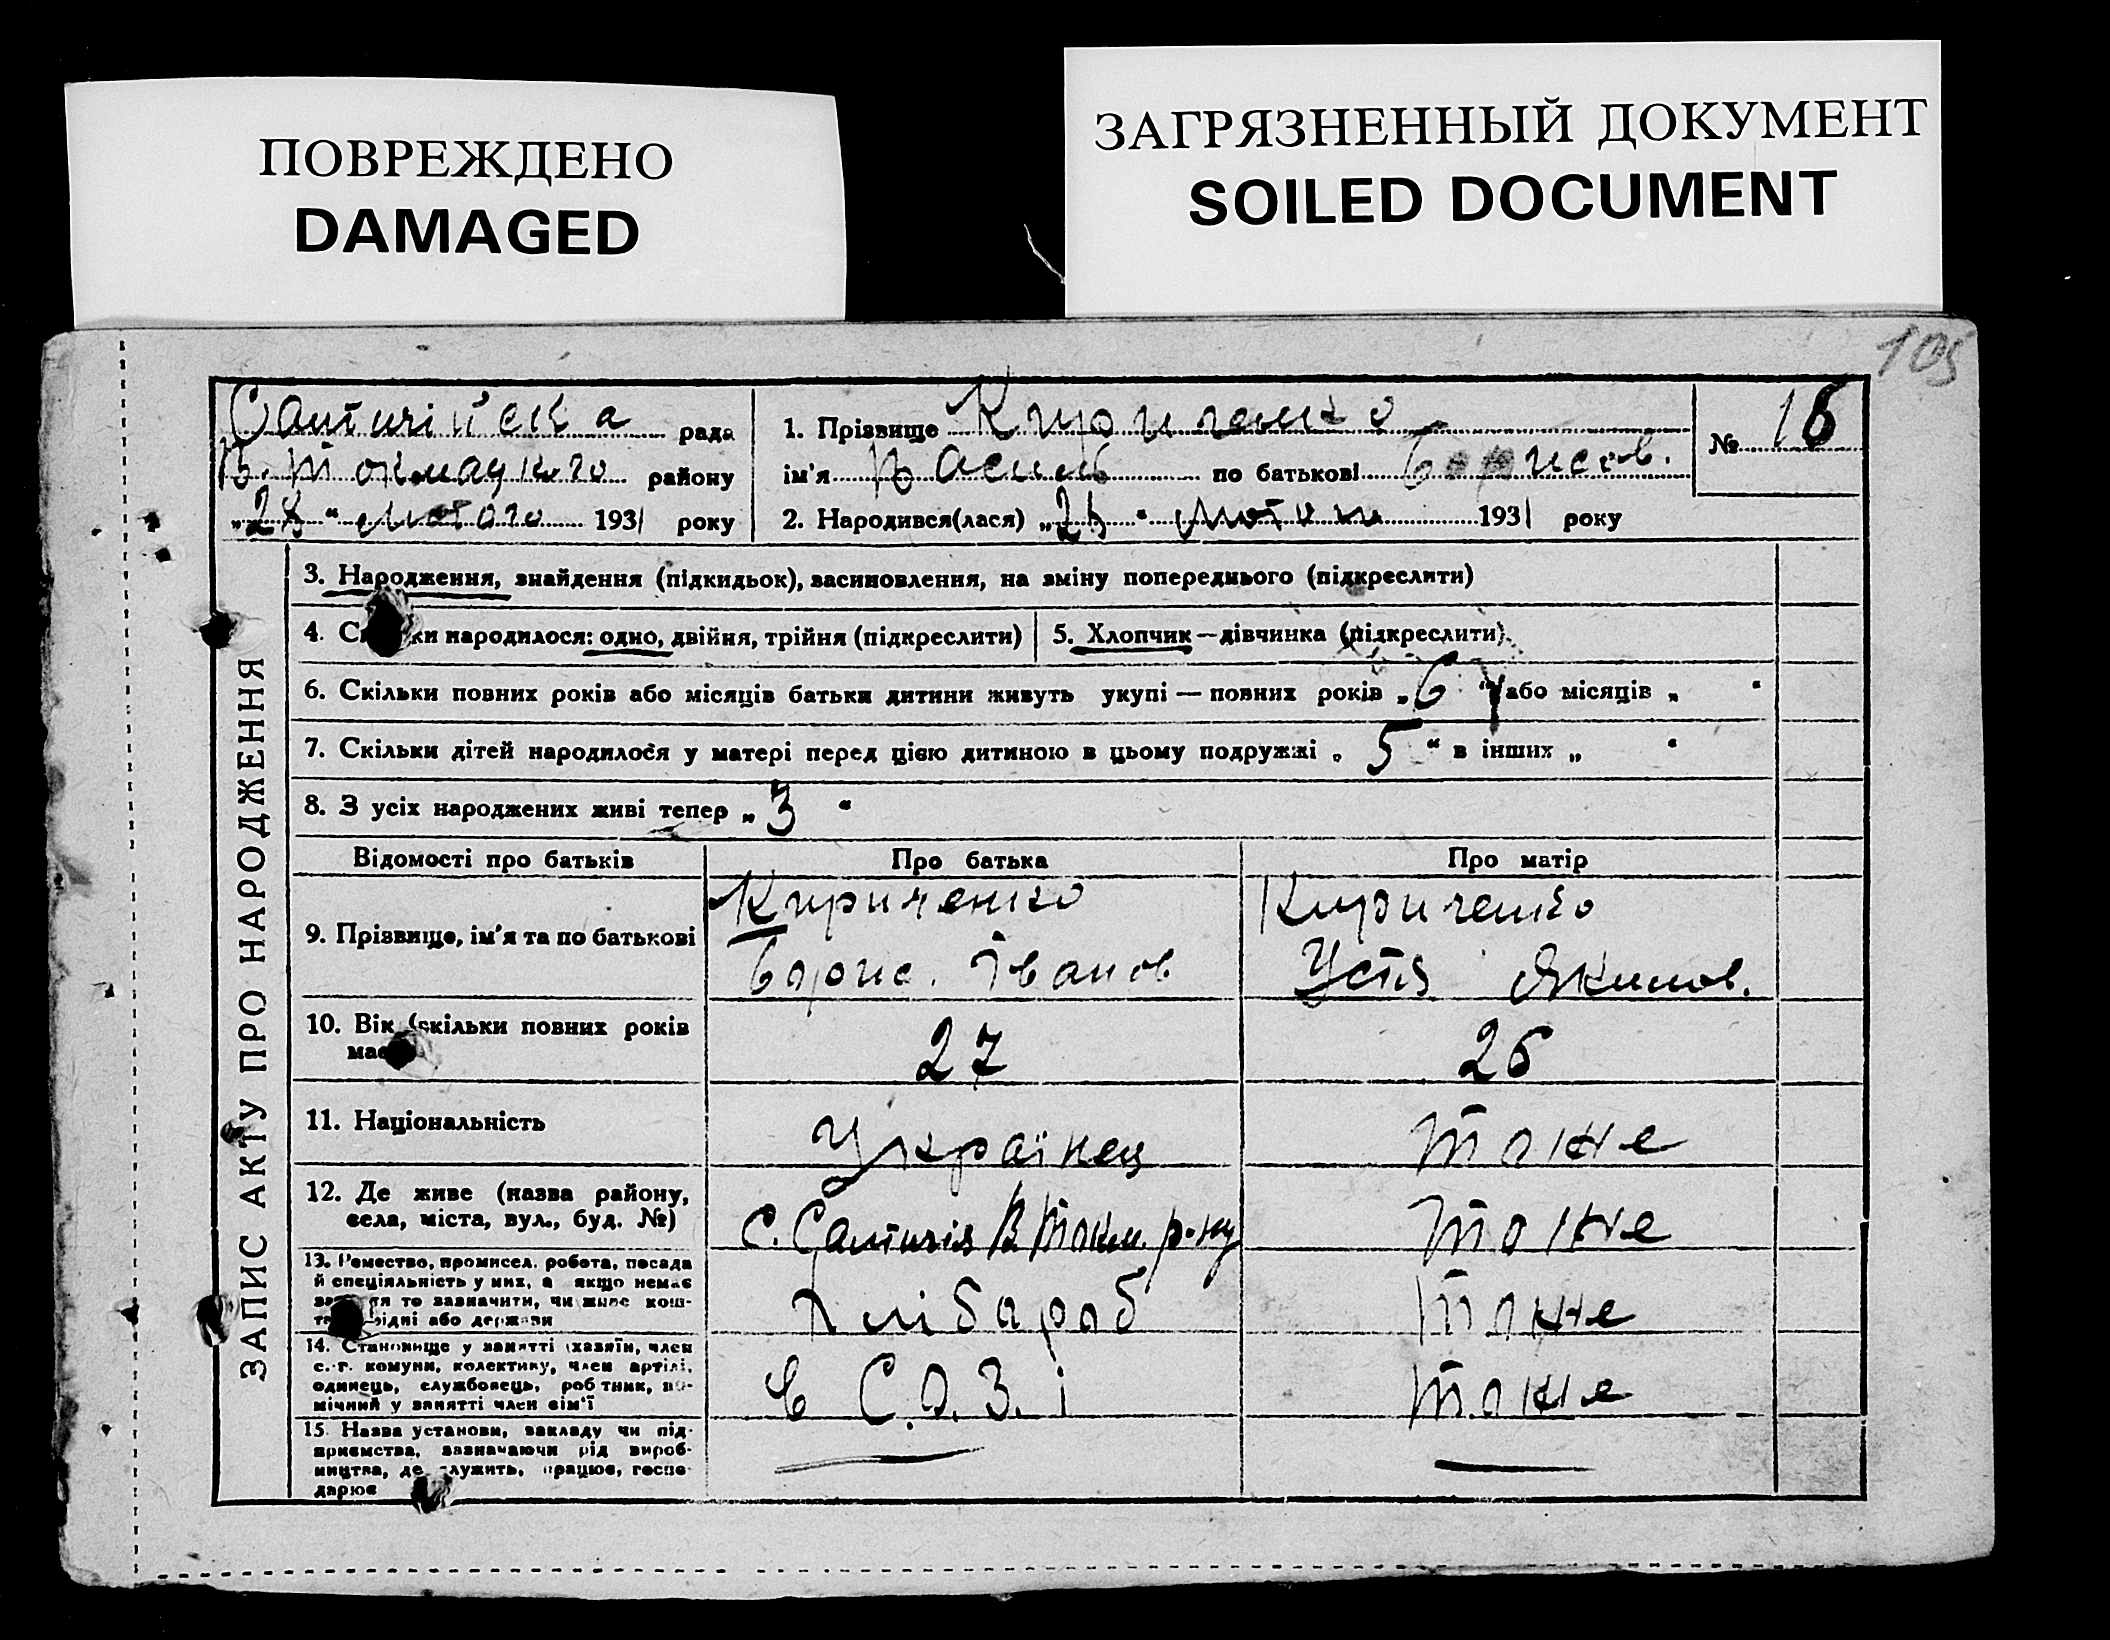 ПОВРЕЖДЕНО
DAMAGED
ЗАГРЯЗНЕННЫЙ ДОКУМЕНТ
SOILED DOCUMENT
105
рада
В. Токмацького району
„28“ лютого 1931 року
1. Прізвище Кириченко
ім'я Василь по батькові Борисов.
2. Народився(лася) „ “ 1931 року
№ 16
ЗАПИС АКТУ ПРО НАРОДЖЕННЯ
3. Народження, знайдення (підкидьок), засиновлення, на зміну попереднього (підкреслити)
4. Ск ки народилося: одно, двійня, трійня (підкреслити)
5. Хлопчик — дівчинка (підкреслити).
6. Скільки повних років або місяців батьки дитини живуть укупі — повних років „6“ або місяців „ “
7. Скільки дітей народилося у матері перед цією дитиною в цьому подружжі „5“ в інших „ “
8. З усіх народжених живі тепер „3“
Відомості про батьків
Про батька
Про матір
9. Прізвище, ім'я та по батькові
Кириченко
Борис. Іванов
Кириченко
Устя Якимов.
10. Вік (скільки повних років
має
27
26
11. Національність
Українец
Тоже
12. Де живе (назва району,
села, міста, вул., буд. №)
с. В. Токм. р-ну
Тоже
13. Ремество, промисел, робота, посада
й спеціяльність у них, а якщо немає
за тя то зазначити, чи живе кош-
то рідні або держави
Хлібороб
Тоже
14. Становище у занятті (хазяїн, член
с.-г. комуни, колективу, член артілі,
одинець, службовець, роб тник, по-
мічний у занятті член сім'ї
С.О.З.і
Тоже
15. Назва установи, закладу чи під-
приємства, зазначаючи рід вироб-
ництва, де служить, працює, госпо-
дарює